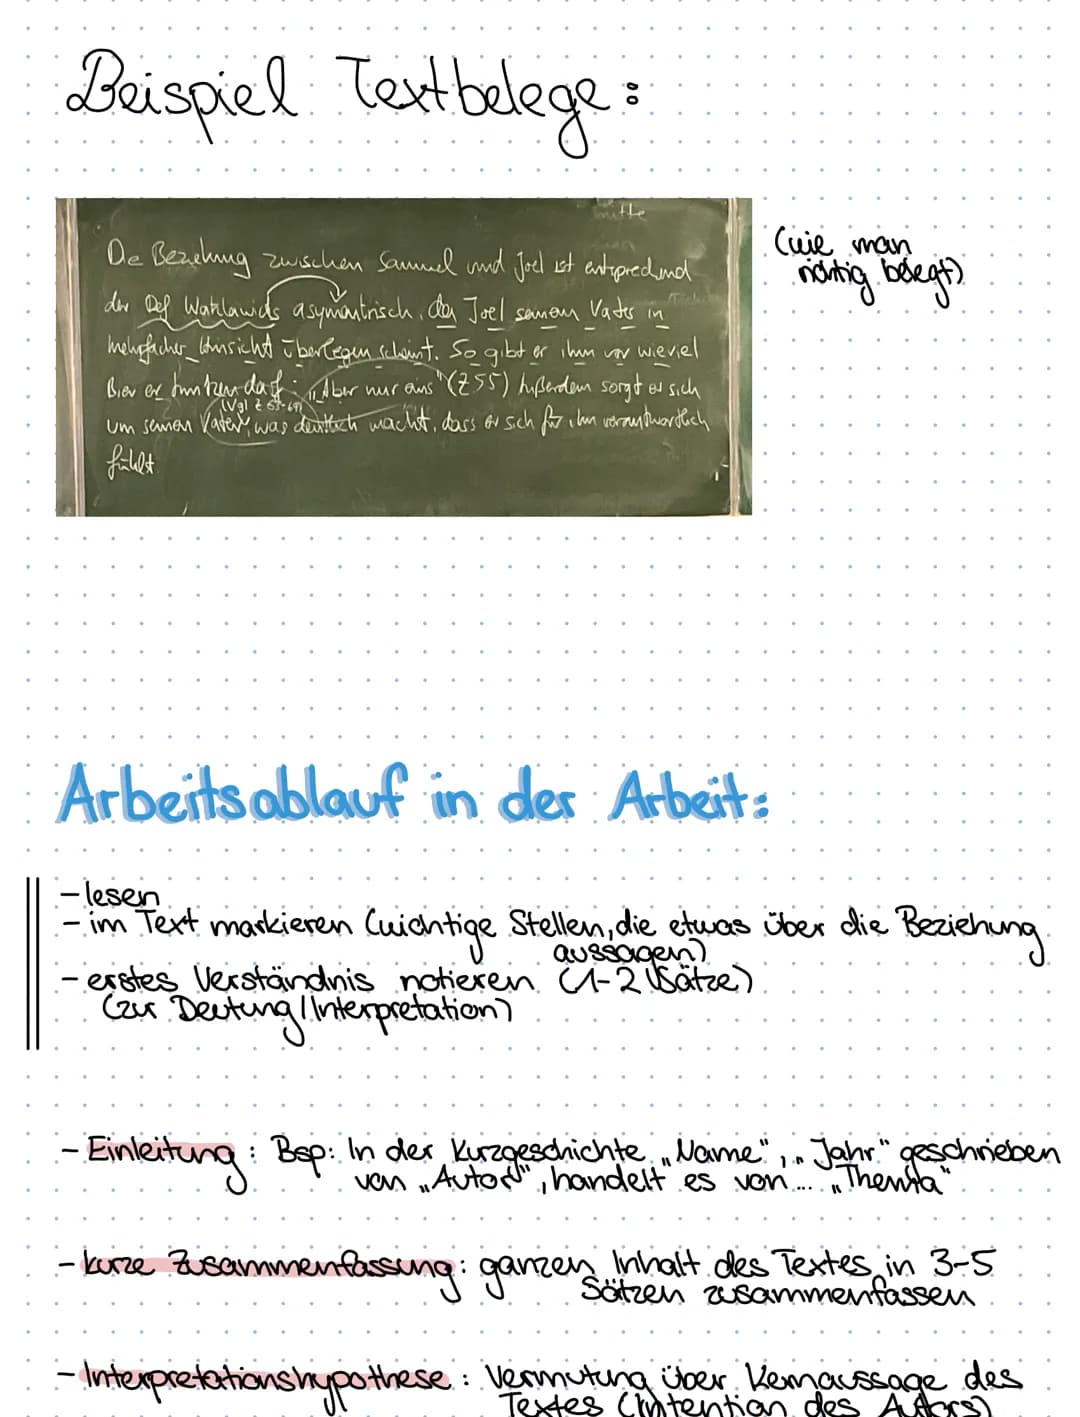 Beispiel Textbelege:
mitte
De Beziehung zwischen Samuel und Joel ist entsprechend
der Def Watzlawicks asymmetrisch, da Joel seinem Vater in
mehrfacher Hinsicht überlegen scheint. So gibt er ihm vor wieviel
Bier er trinken darf: „Aber nur eins" (Z 55) Außerdem sorgt er sich
(Vgl Z 63-69)
um seinen Vater, was deutlich macht, dass er sich für ihn verantwortlich
fühlt
(wie man
richtig belegt)
Arbeitsablauf in der Arbeit:
- lesen
- im Text markieren (wichtige Stellen, die etwas über die Beziehung
aussagen)
- erstes Verständnis notieren (1-2 Sätze)
(zur Deutung/Interpretation)
- Einleitung: Bsp: In der Kurzgeschichte „Name", „Jahr" geschrieben
von „Autor", handelt es von... „Thema"
- kurze Zusammenfassung: ganzen Inhalt des Textes in 3-5
Sätzen zusammenfassen
- Interpretationshypothese: Vermutung über Kernaussage des
Textes (Intention des Autors)